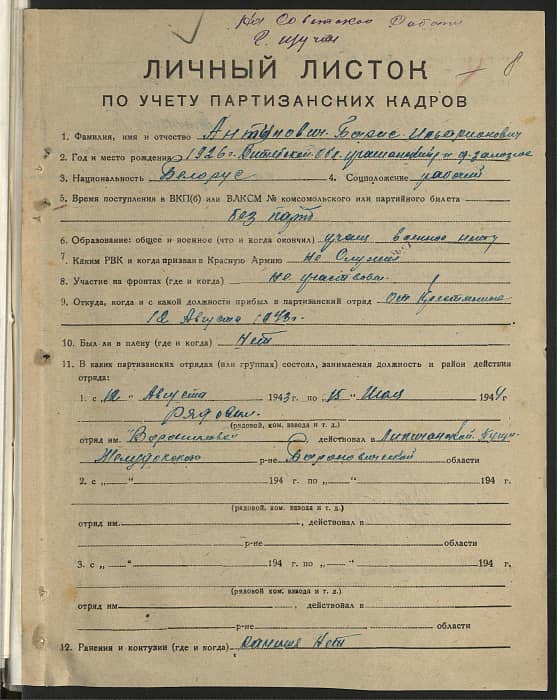 На Советской Работе
г. Щучин
8
ЛИЧНЫЙ ЛИСТОК
ПО УЧЕТУ ПАРТИЗАНСКИХ КАДРОВ
1. Фамилия, имя и отчество Борис Иларионович
2. Год и место рождения 1926 г. Витебской обл.
3. Национальность Белорус 4. Соцположение рабочий
5. Время поступления в ВКП(б) или ВЛКСМ № комсомольского или партийного билета
без парт
6. Образование: общее и военное (что и когда окончил)
7. Каким РВК и когда призван в Красную Армию не Служил
8. Участие на фронтах (где и когда) не участвовал
9. Откуда, когда и с какой должности прибыл в партизанский отряд От
12 Августа 1943 г.
10. Был ли в плену (где и когда) Нет
11. В каких партизанских отрядах (или группах) состоял, занимаемая должность и район действия
отряда:
1. с „12 “ Августа 1943 г. по „15 “ Июля 1944 г.
Рядовым
(рядовой, ком. взвода и т. д.)
отряд им. "Ворошилова" , действовал в Липичанской Пущи
Желудокского р-не Барановичской области
2. с „ “ 194 г. по „ “ 194 г.
(рядовой, ком. взвода и т. д.)
отряд им. , действовал в
р-не области
3. с „ “ 194 г. по „ “ 194 г,
(рядовой, ком. взвода и т. д.)
отряд им. , действовал в
р-не области
12. Ранения и контузии (где и когда) Нет